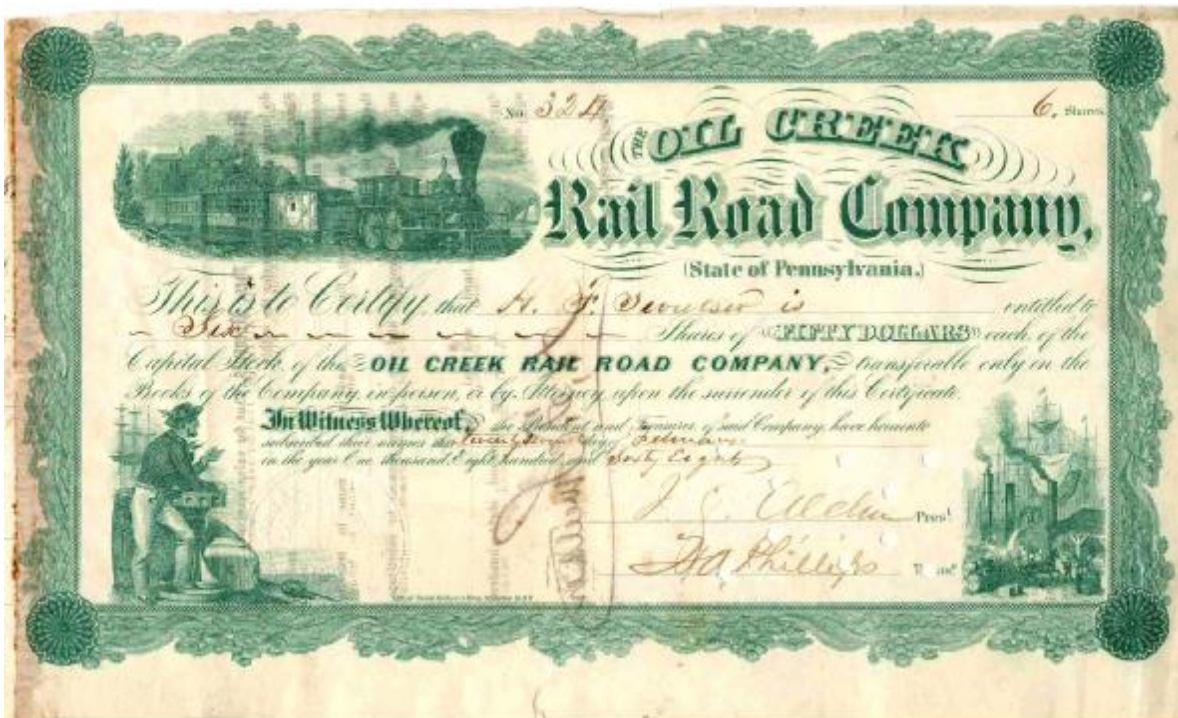 No. 324 6. Shares
THE OIL CREEK
Rail Road Company,
(State of Pennsylvania.)
This is to Certify, that H. F. is entitled to
Six Shares of FIFTY DOLLARS each of the
Capital Stock of the OIL CREEK RAIL ROAD COMPANY, transferable only in the
Books of the Company in person, or by Attorney, upon the surrender of this Certificate.
In Witness Whereof, the President and Treasurer of said Company have hereunto
subscribed their names this day of
in the year One thousand Eight hundred and Sixty Eight
Prest
Phillips Treasr